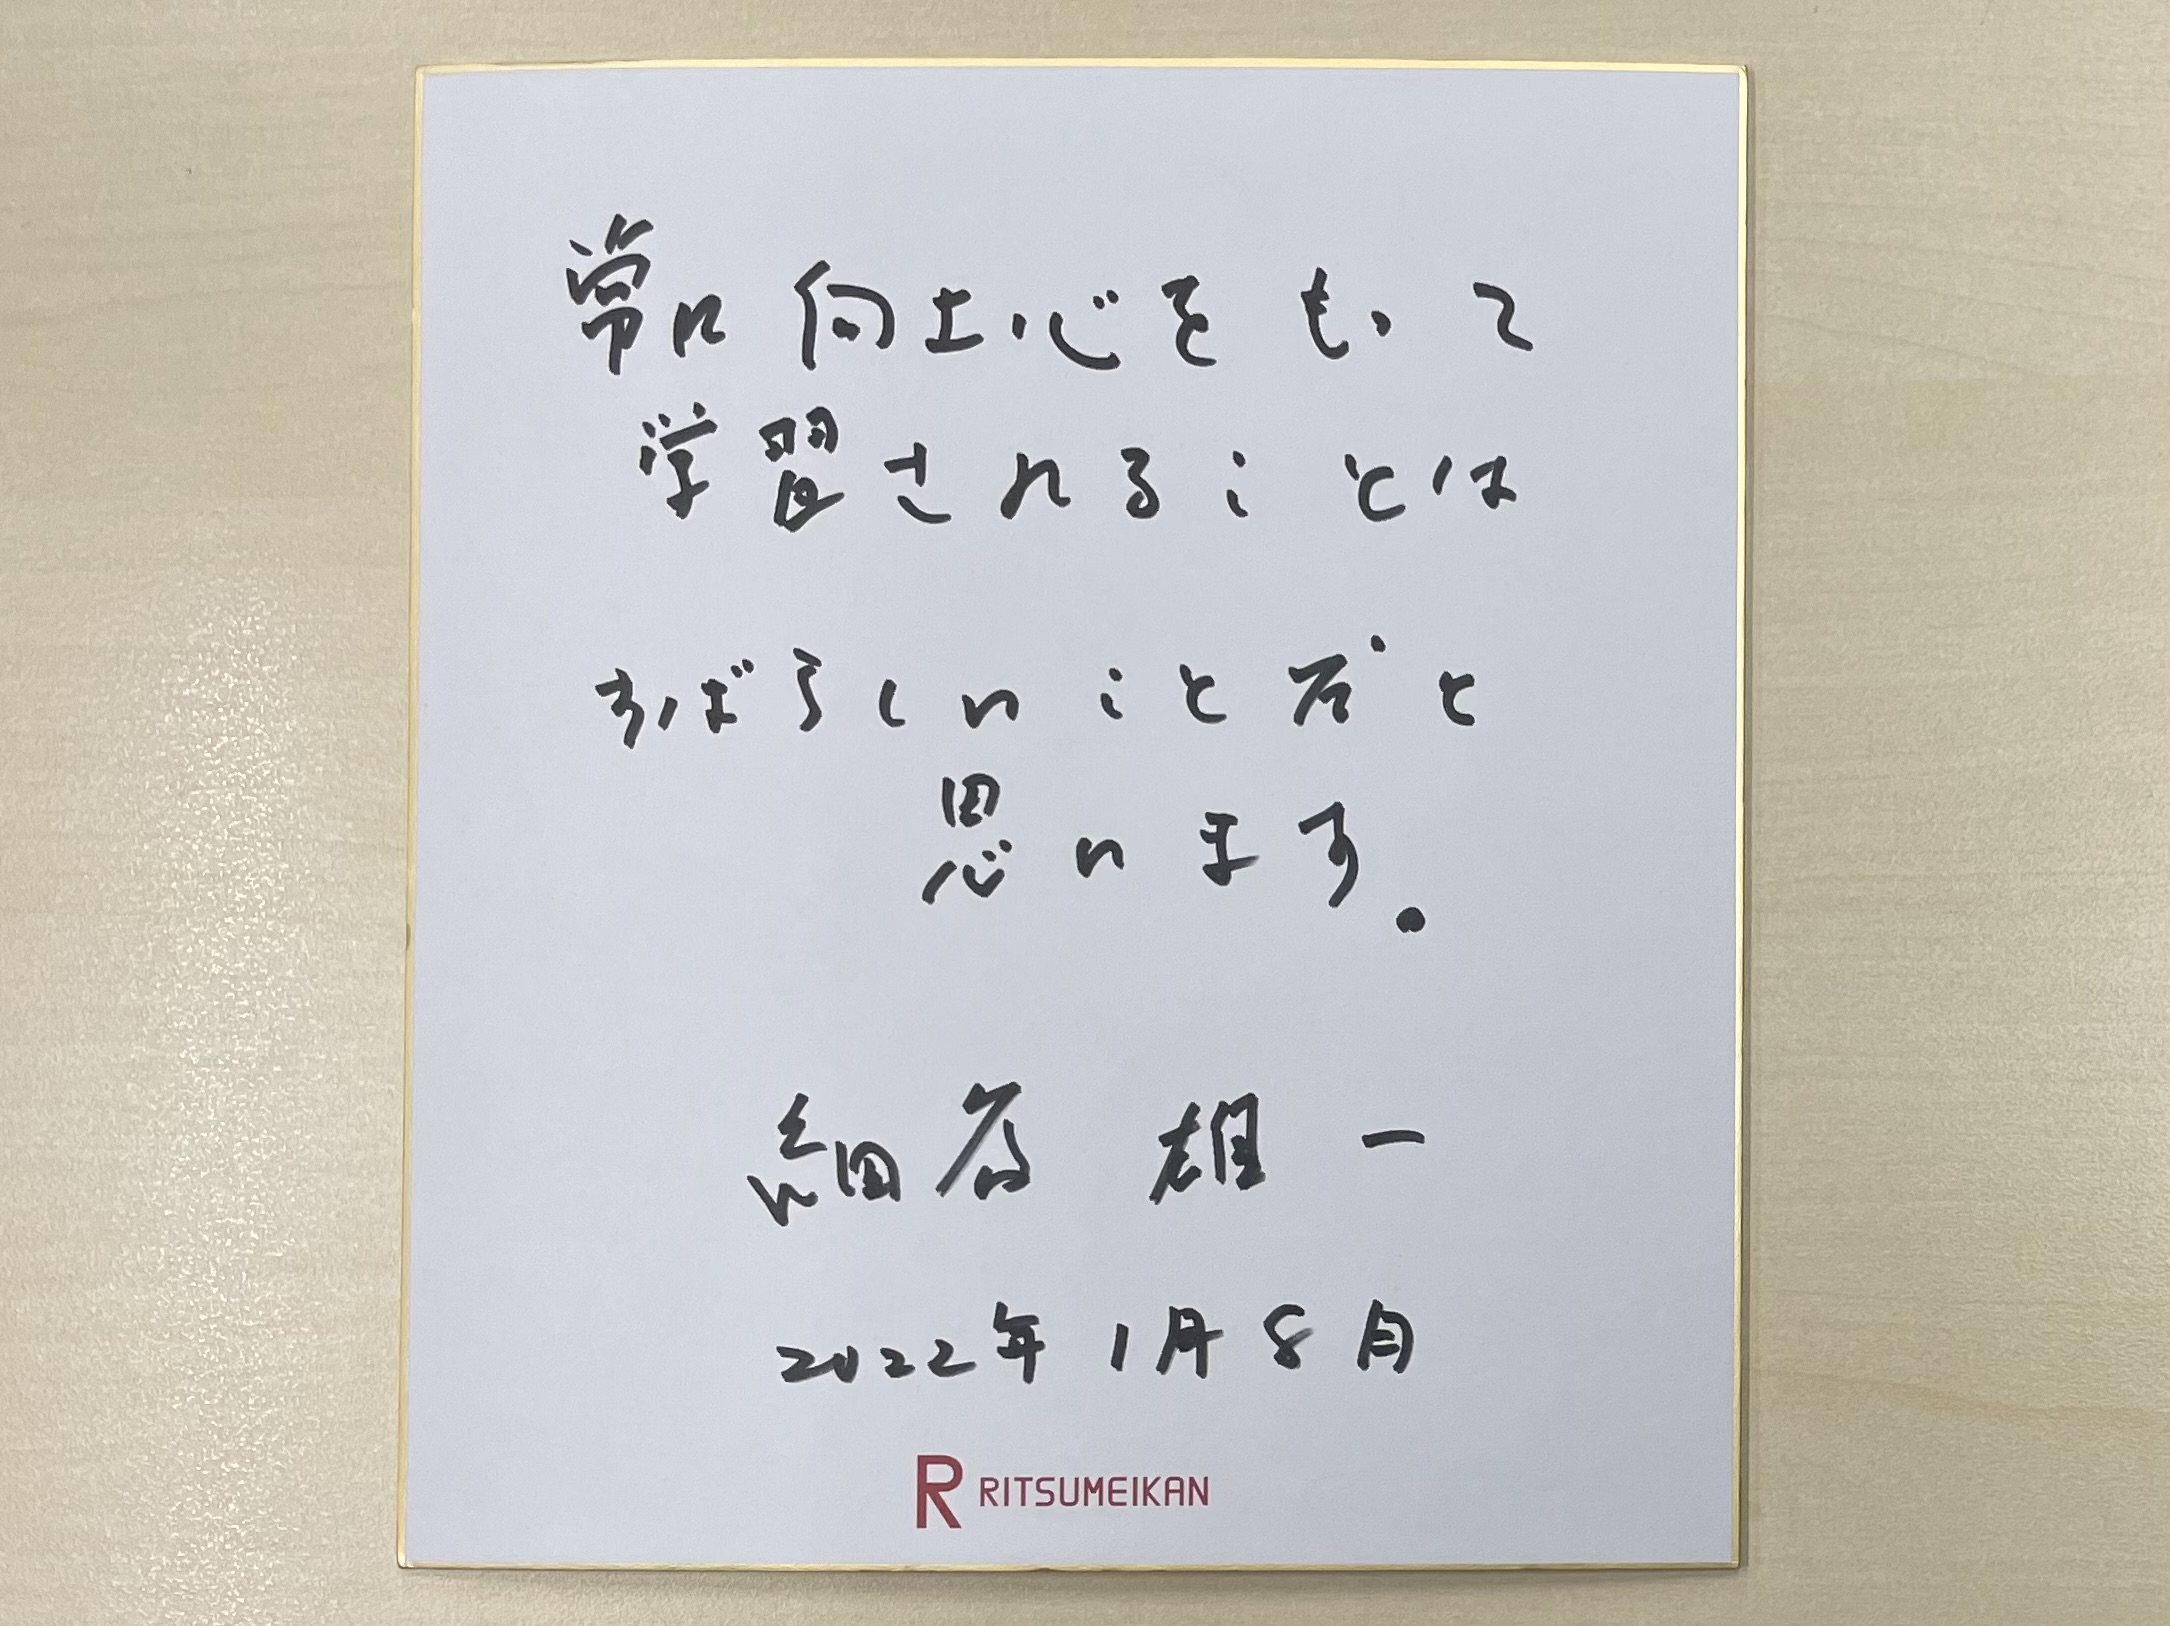 常に向上心をもって
学習されることは
すばらしいことだと
思います。
細谷 雄一
2022年1月8日
R RITSUMEIKAN